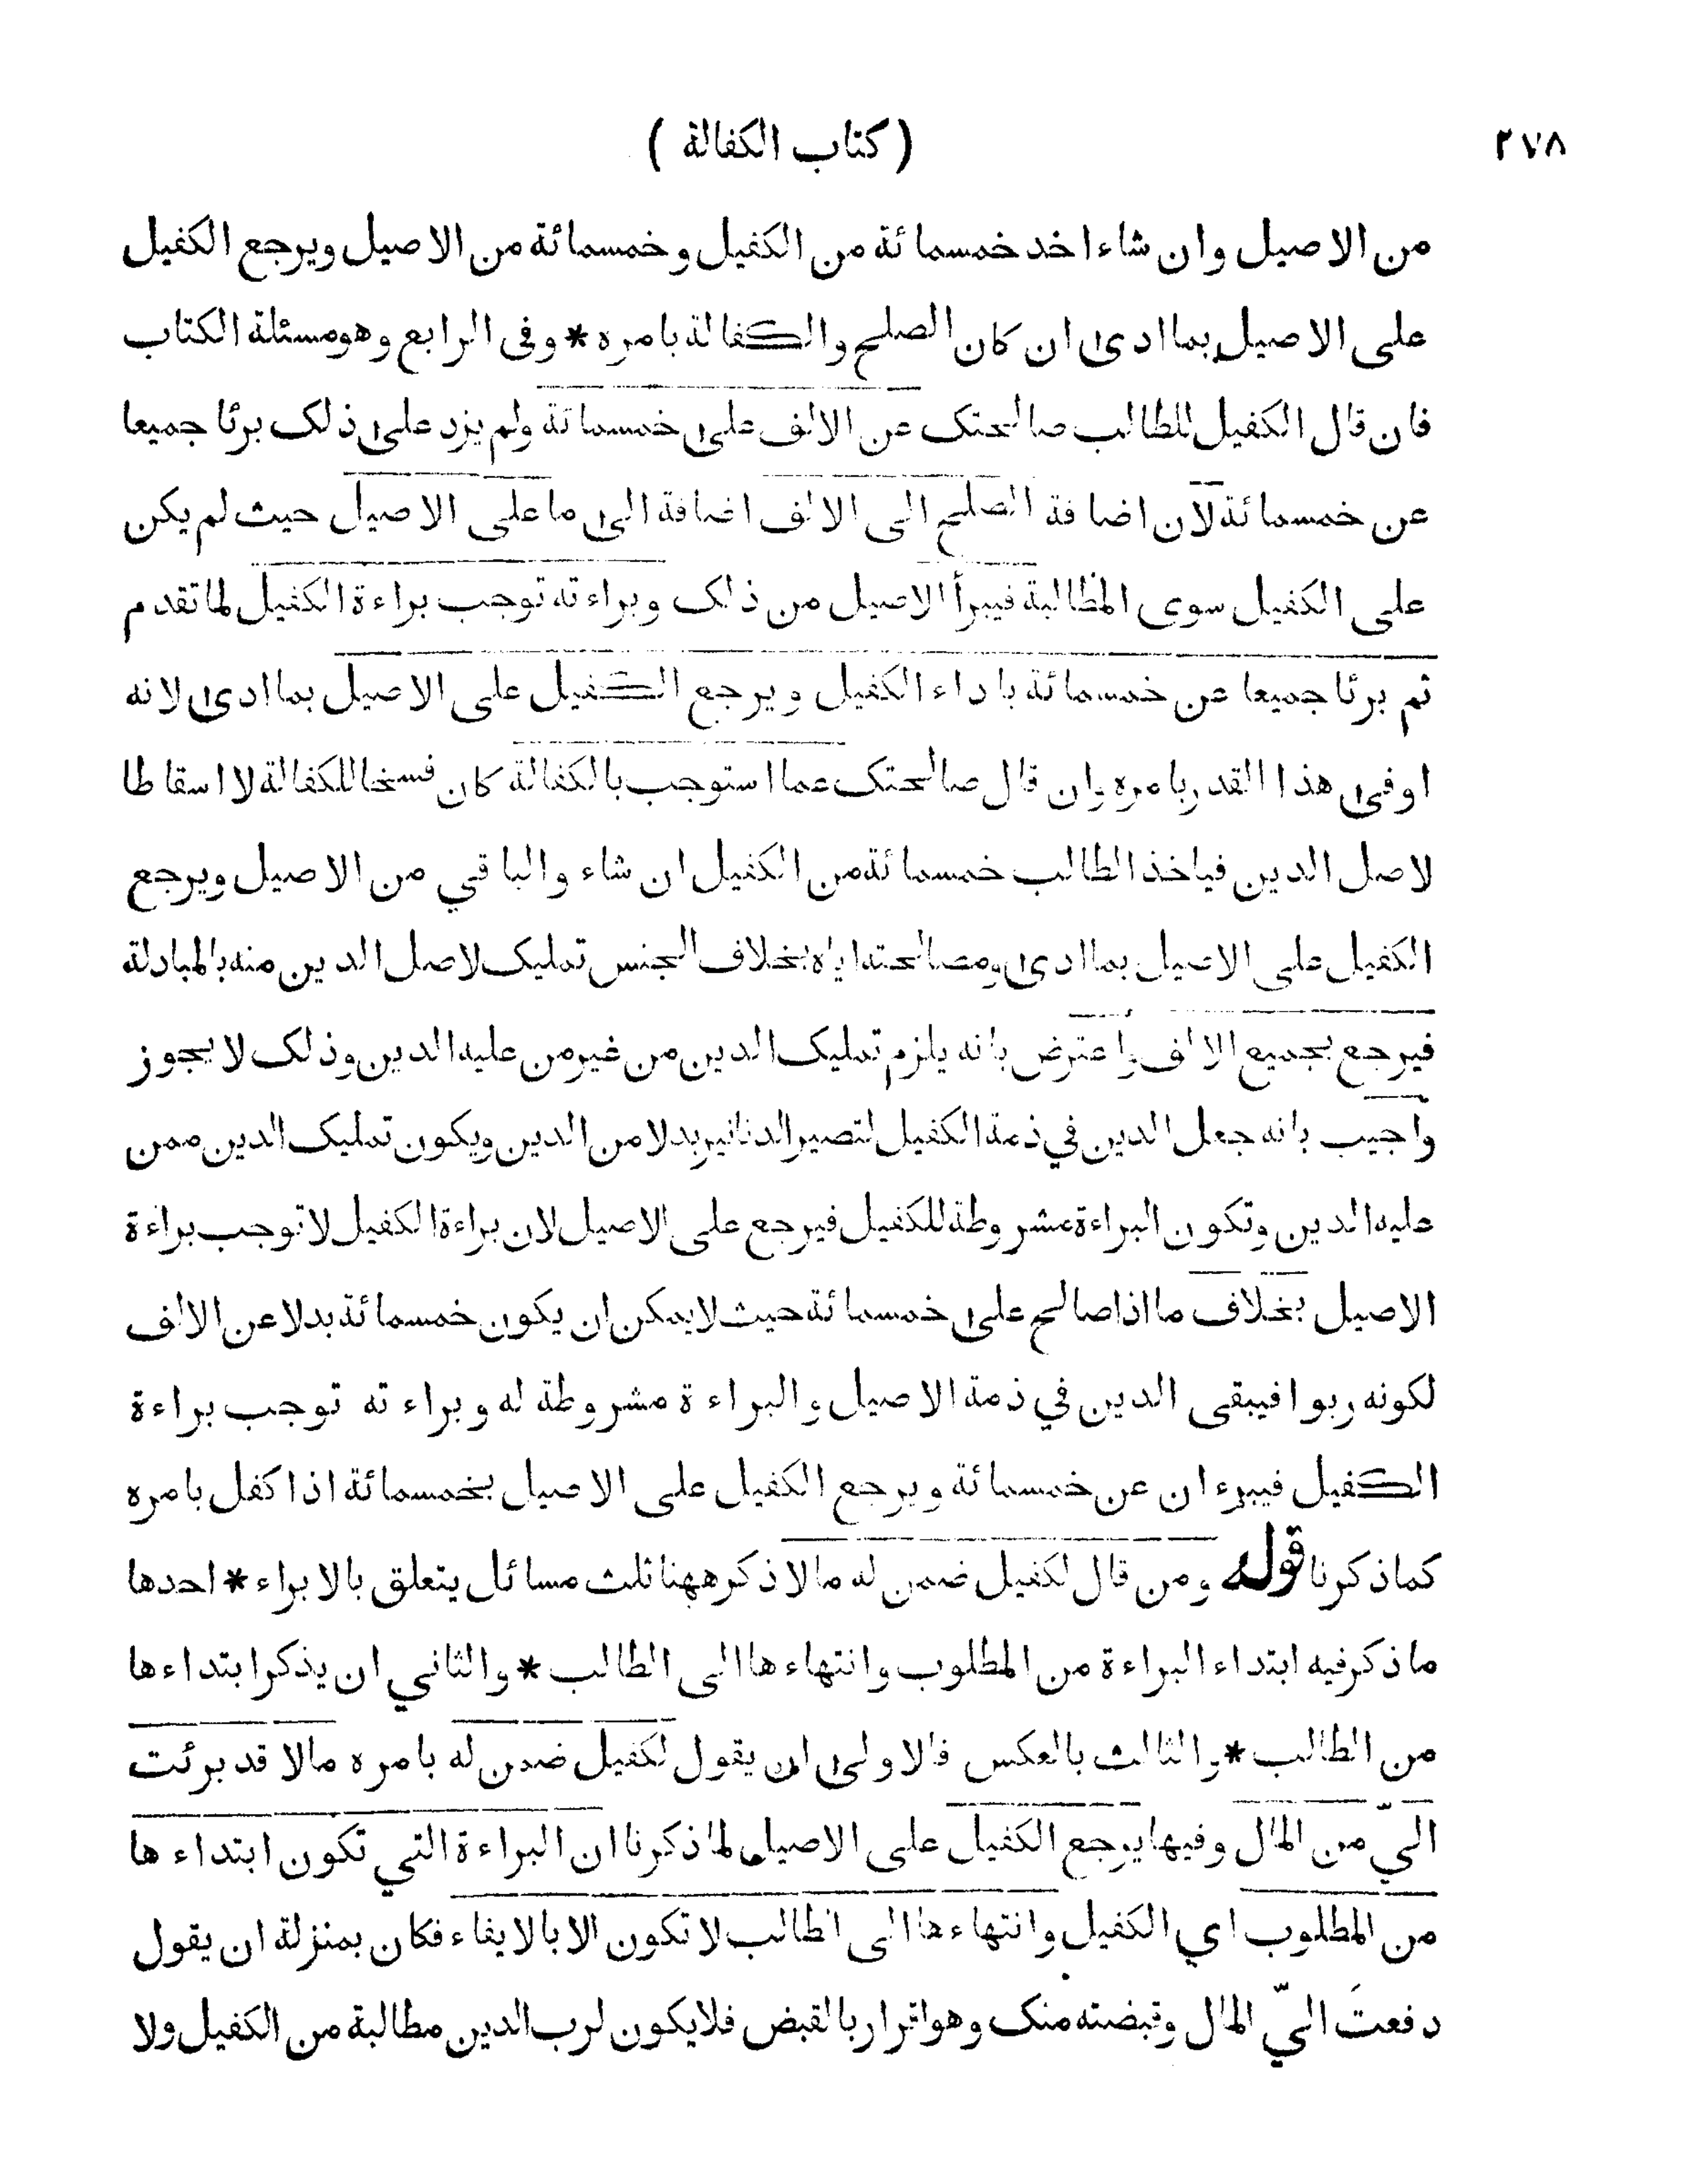 ٢٧٨ ( كتاب الكفالة )
من الاصيل وان شاء اخد خمسمائة من الكفيل وخمسمائة من الاصيل ويرجع الكفيل
على الاصيل بما ادى ان كان الصلح والكفالة بامره * وفى الرابع وهو مسئلة الكتاب
فان قال الكفيل للطالب صالحتك عن الالف على خمسمائة ولم يزد على ذلك برئا جميعا
عن خمسمائة لان اضافة الصلح الى الالف اضافة الى ما على الاصيل حيث لم يكن
على الكفيل سوى المطالبة فيبرأ الاصيل من ذلك وبراءته توجب براءة الكفيل لما تقدم
ثم برئا جميعا عن خمسمائة باداء الكفيل ويرجع الكفيل على الاصيل بما ادى لانه
اوفى هذا القدر بامره وان قال صالحتك عما استوجب بالكفالة كان فسخا للكفالة لا اسقاطا
لاصل الدين فياخذ الطالب خمسمائة من الكفيل ان شاء والباقي من الاصيل ويرجع
الكفيل على الاصيل بما ادى ومصالحته اياه بخلاف الجنس تمليك لاصل الدين منه بالمبادلة
فيرجع بجميع الالف واعترض بانه يلزم تمليك الدين من غير من عليه الدين وذلك لا يجوز
واجيب بانه جعل الدين في ذمة الكفيل لتصير الدنانير بدلا من الدين ويكون تمليك الدين ممن
عليه الدين وتكون البراءة مشروطة للكفيل فيرجع على الاصيل لان براءة الكفيل لا توجب براءة
الاصيل بخلاف ما اذا صالح على خمسمائة حيث لا يمكن ان يكون خمسمائة بدلا عن الالف
لكونه ربوا فيبقى الدين في ذمة الاصيل والبراءة مشروطة له وبراءته توجب براءة
الكفيل فيبرءان عن خمسمائة ويرجع الكفيل على الاصيل بخمسمائة اذا كفل بامره
كما ذكرنا قوله ومن قال لكفيل ضمن له مالا ذكر ههنا ثلث مسائل يتعلق بالابراء * احدها
ما ذكر فيه ابتداء البراءة من المطلوب وانتهاءها الى الطالب * والثاني ان يذكر ابتداءها
من الطالب * والثالث بالعكس فالاولى ان يقول لكفيل ضمن له بامره مالا قد برئت
الىّ من المال وفيها يرجع الكفيل على الاصيل لما ذكرنا ان البراءة التي تكون ابتداءها
من المطلوب اي الكفيل وانتهاءها الى الطالب لا تكون الا بالايفاء فكان بمنزلة ان يقول
دفعتَ اليّ المال وقبضته منك وهو اقرار بالقبض فلا يكون لرب الدين مطالبة من الكفيل ولا